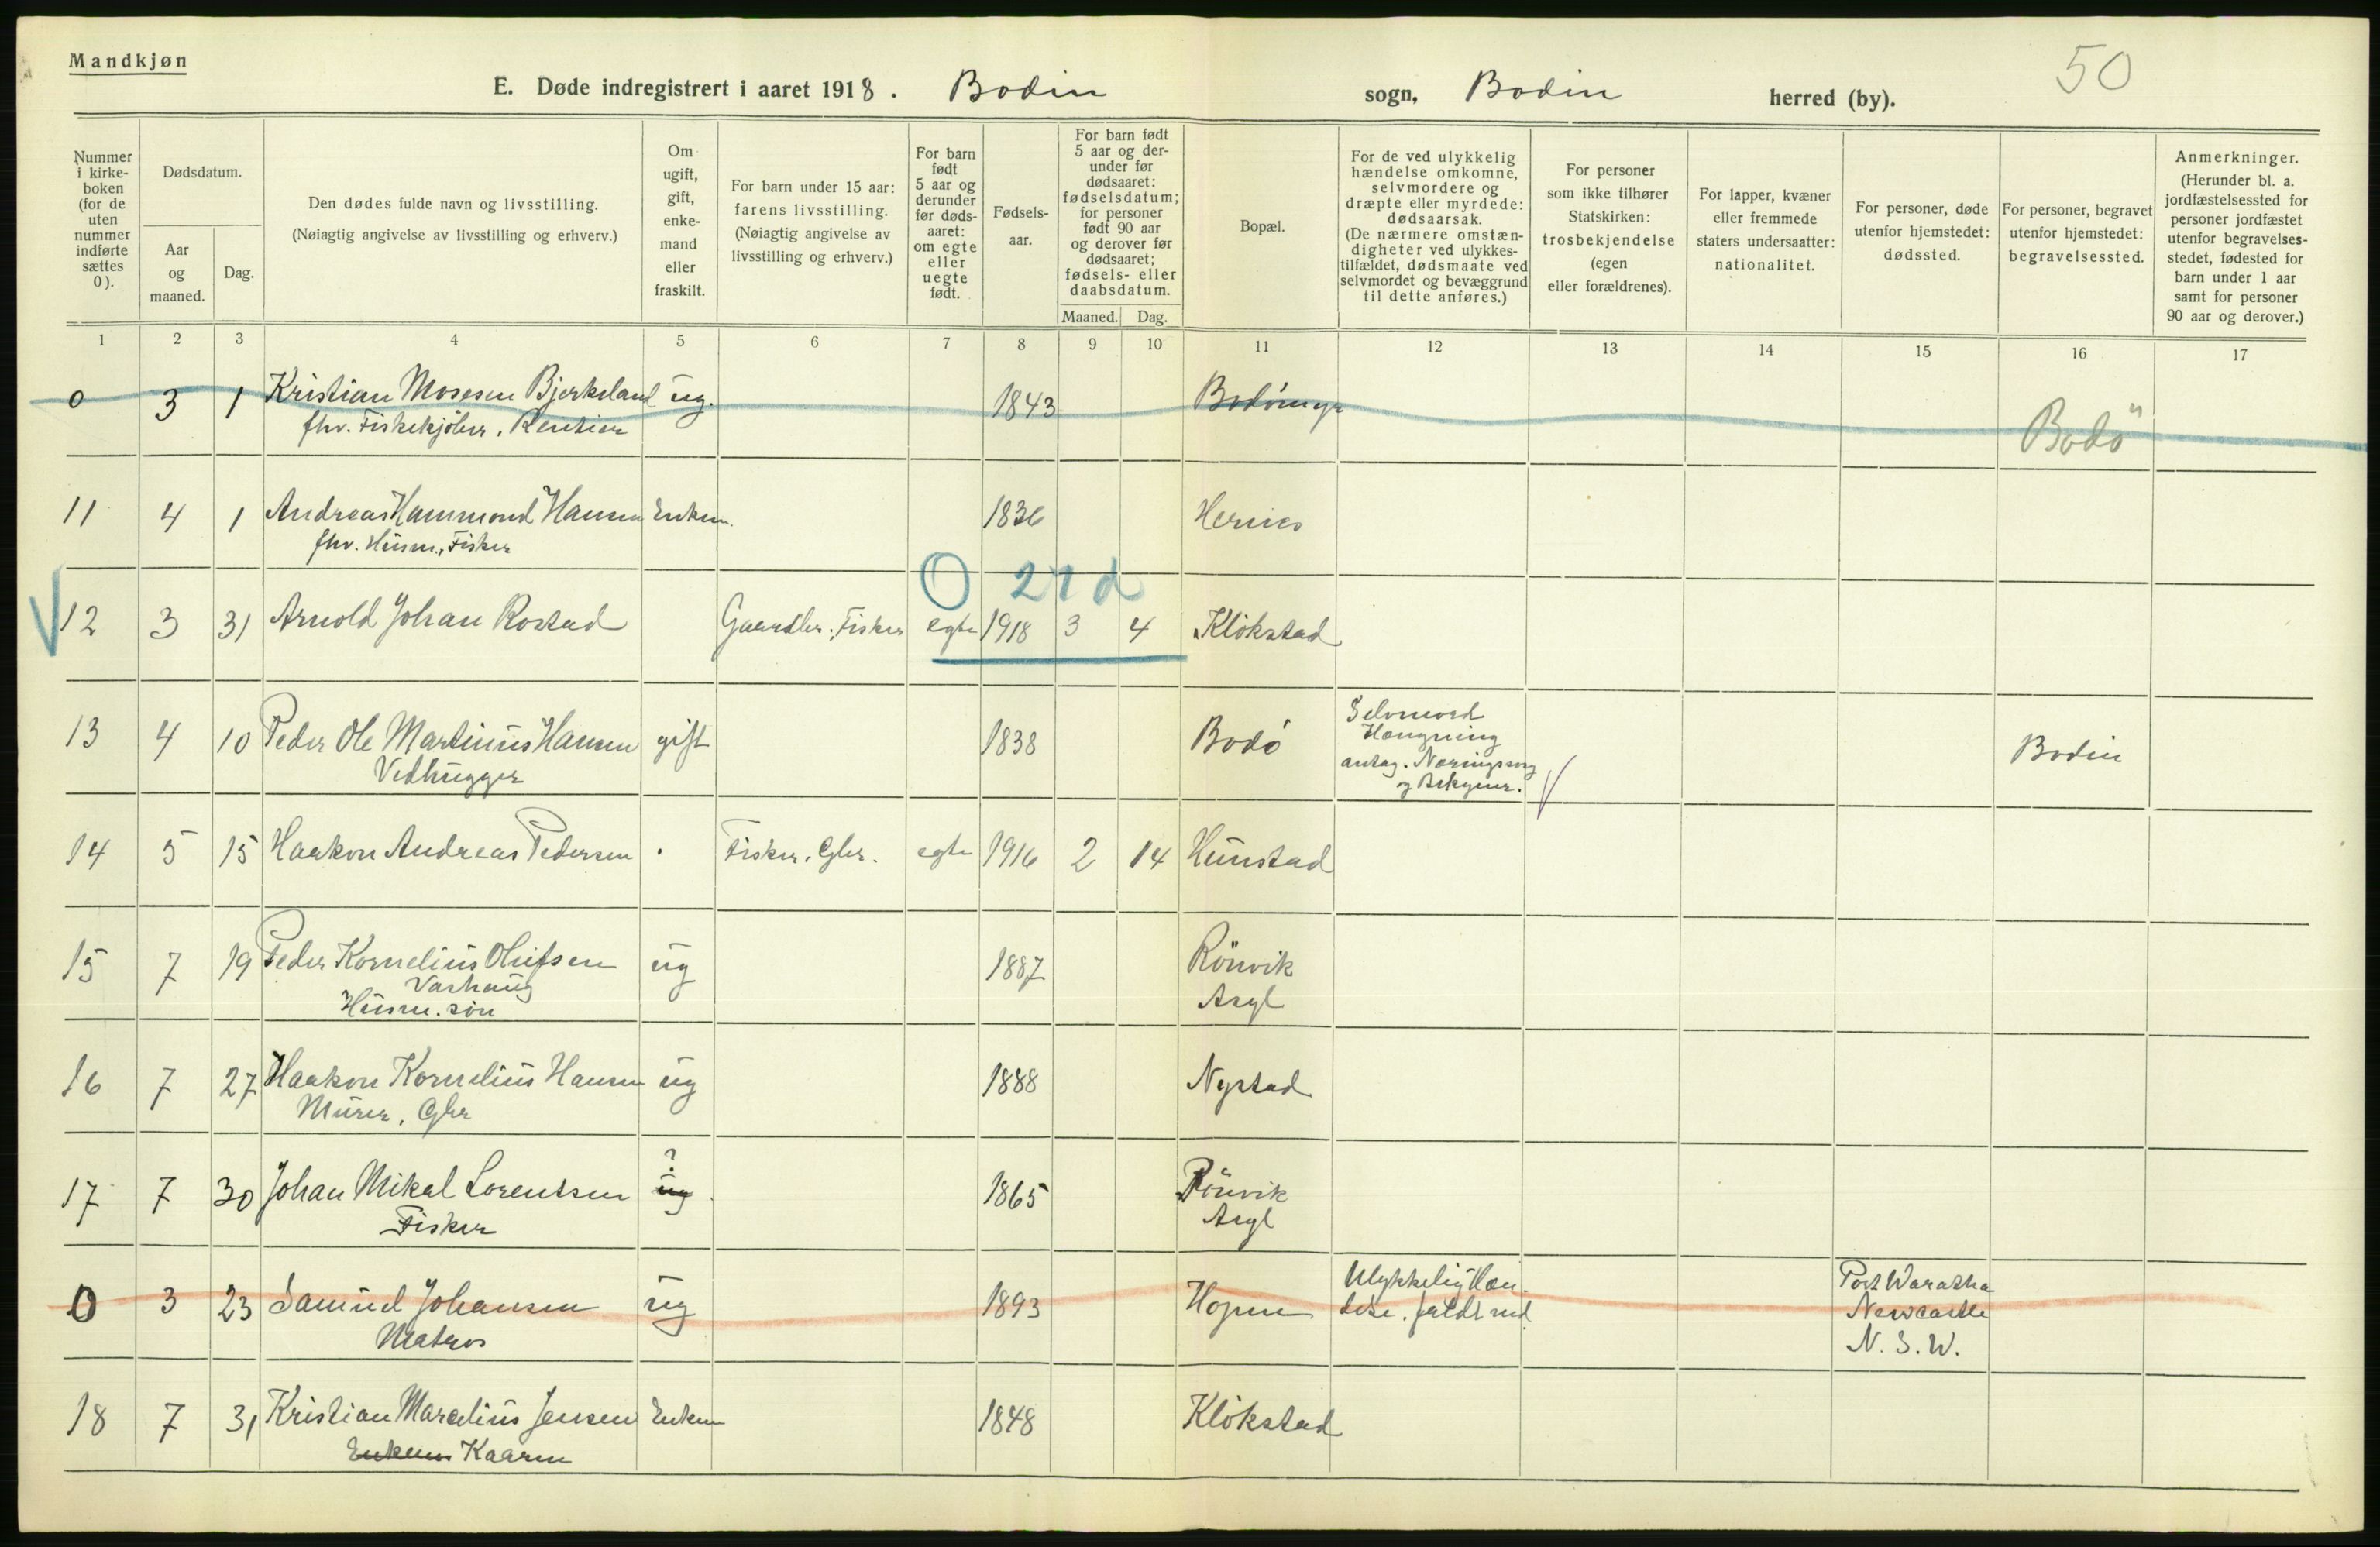 Mandkjøn
50
E. Døde indregistrert i aaret 1918. Bodin sogn, Bodin herred (by).
Nummer i kirke-boken (for de uten nummer indførte sættes 0).
Dødsdatum.
Aar og maaned.
Dag.
Den dødes fulde navn og livsstilling.
(Nøiagtig angivelse av livsstilling og erhverv.)
Om ugift, gift, enke-mand eller fraskilt.
For barn under 15 aar: farens livsstilling. (Nøiagtig angivelse av livsstilling og erhverv.)
For barn født 5 aar og derunder før døds-aaret: om egte eller uegte født.
Fødsels-aar.
For barn født 5 aar og der-under før dødsaaret: fødselsdatum; for personer født 90 aar og derover før dødsaaret; fødsels- eller daabsdatum.
Maaned. Dag.
Bopæl.
For de ved ulykkelig hændelse omkomne, selvmordere og dræpte eller myrdede: dødsaarsak. (De nærmere omstæn-digheter ved ulykkes-tilfældet, dødsmaate ved selvmordet og bevæggrund til dette anføres.)
For personer som ikke tilhører Statskirken: trosbekjendelse (egen eller forældrenes).
For lapper, kvæner eller fremmede staters undersaatter: nationalitet.
For personer, døde utenfor hjemstedet: dødssted.
For personer, begravet utenfor hjemstedet: begravelsessted.
Anmerkninger. (Herunder bl. a. jordfæstelsessted for personer jordfæstet utenfor begravelses-stedet, fødested for barn under 1 aar samt for personer 90 aar og derover.)
1 2 3 4 5 6 7 8 9 10 11 12 13 14 15 16 17
0 3 1 Kristian Mosesen Bjerkeland ug. 1843 Bodömyr Bodö"
fhv. Fiskekjöber, Rentier
11 4 1 Andreas Hammond Hansen Enkem. 1836 Hernes
fhv. Husm., Fisker
0 27 d
12 3 31 Arnold Johan Rostad Gaardbr., Fisker egte 1918 3 4 Klökstad
13 4 10 Peder Ole Martinus Hansen gift 1838 Bodö Selvmord Bodin
Vedhugger Hængning
antag. Næringssorg
og Bekymr.
14 5 15 Haakon Andreas Pedersen . Fisker, Gbr. egte 1916 2 14 Hunstad
15 7 19 Peder Kornelius Olufsen ug 1887 Rönvik
Varhaug Asyl
Husm. sön
16 7 27 Haakon Kornelius Hansen ug 1888 Nystad
Murer, Gbr
17 7 30 Johan Mikal Lorentsen ? ug 1865 Rönvik
Fisker Asyl
0 3 23 Samuel Johansen ug 1893 Hopen Ulykkelig Hæn- Port Waratha
Matros delse. faldt ned. Newcastle
N. S. W.
18 7 31 Kristian Marelius Jensen Enkem 1848 Klökstad
Enkem Kaarm